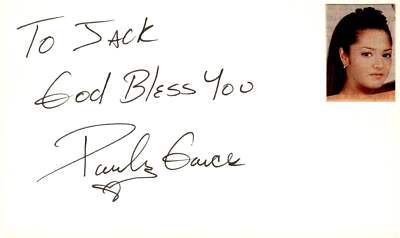 To JACK
God Bless You
Paula Garces